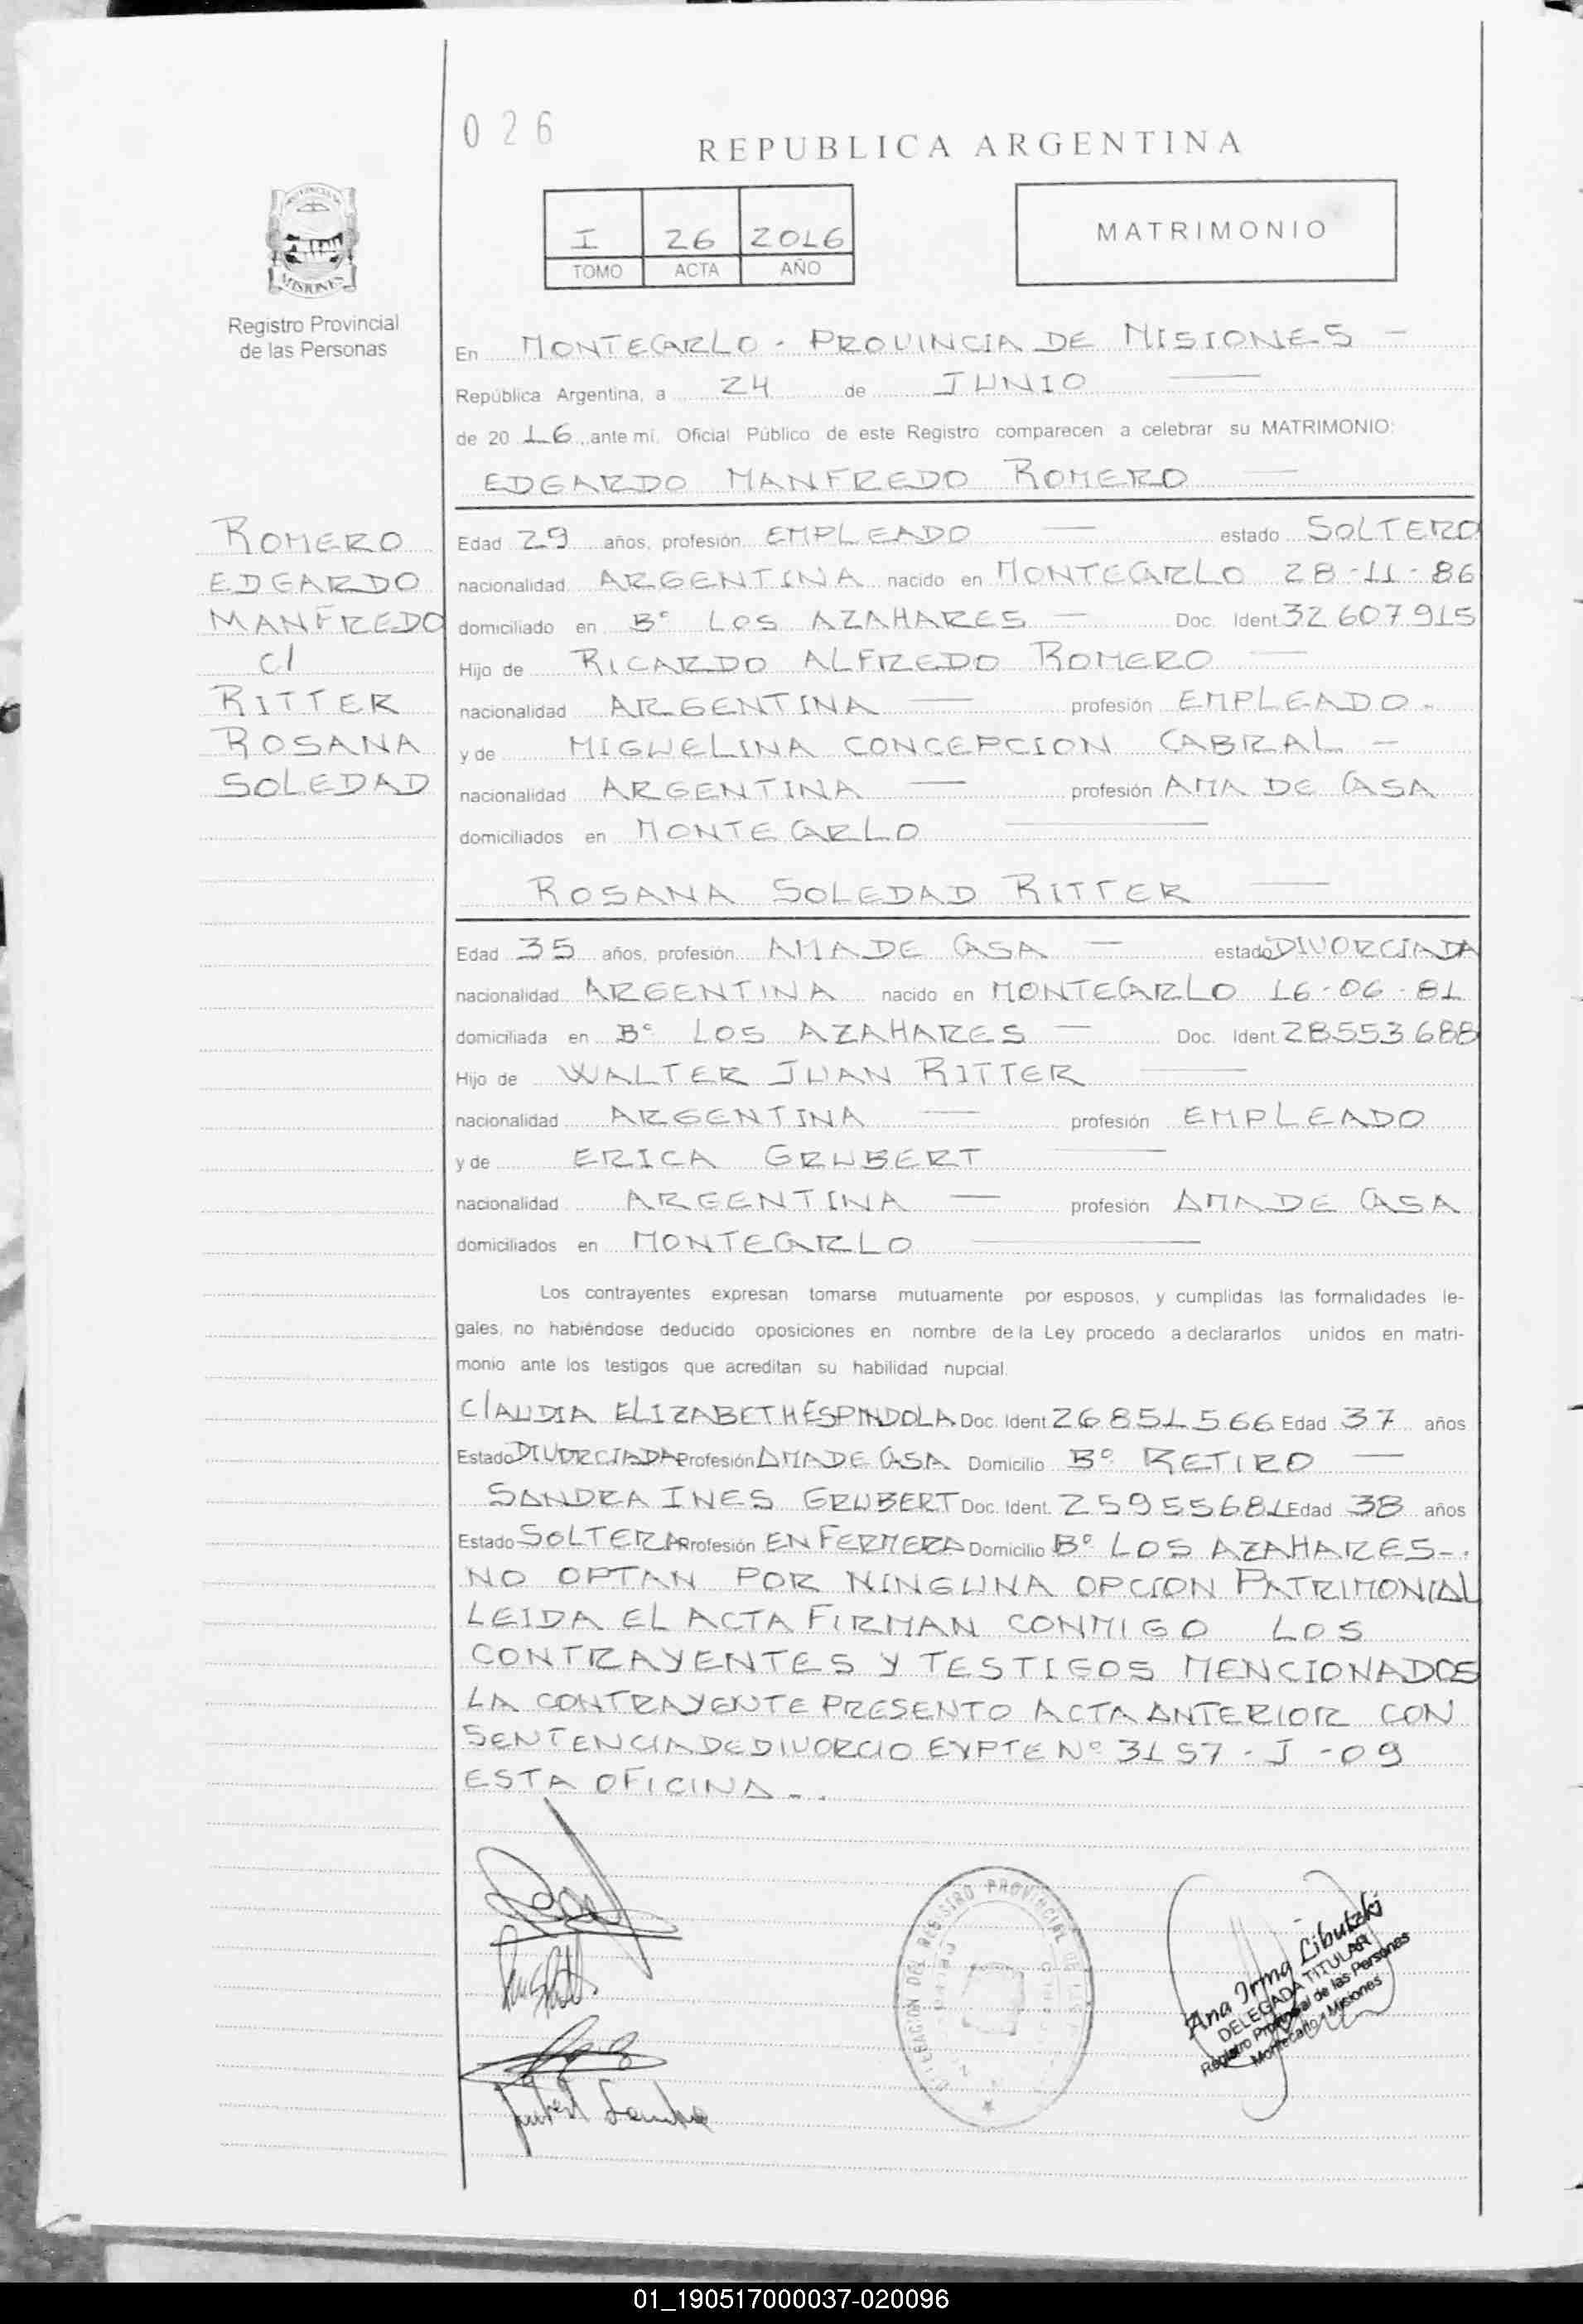 026
REPUBLICA ARGENTINA
I 26 2016
TOMO ACTA AÑO
MATRIMONIO
MISIONES
Registro Provincial
de las Personas
En MONTECARLO - PROVINCIA DE MISIONES —
República Argentina, a 24 de JUNIO —
de 20 16 ante mí, Oficial Público de este Registro comparecen a celebrar su MATRIMONIO:
EDGARDO MANFREDO ROMERO —
ROMERO
EDGARDO
MANFREDO
c/
RITTER
ROSANA
SOLEDAD
Edad 29 años, profesión EMPLEADO — estado SOLTERO
nacionalidad ARGENTINA nacido en MONTECARLO 28-11-86
domiciliado en B° LOS AZAHARES — Doc. Ident 32 607 915
Hijo de RICARDO ALFREDO ROMERO —
nacionalidad ARGENTINA — profesión EMPLEADO.
y de MIGUELINA CONCEPCION CABRAL —
nacionalidad ARGENTINA — profesión AMA DE CASA
domiciliados en MONTECARLO —
ROSANA SOLEDAD RITTER —
Edad 35 años, profesión AMA DE CASA — estado DIVORCIADA
nacionalidad ARGENTINA nacido en MONTECARLO 16-06-81
domiciliada en B° LOS AZAHARES — Doc. Ident 28553688
Hijo de WALTER JUAN RITTER —
nacionalidad ARGENTINA — profesión EMPLEADO
y de ERICA GRUBERT —
nacionalidad ARGENTINA — profesión AMA DE CASA
domiciliados en MONTECARLO —
Los contrayentes expresan tomarse mutuamente por esposos, y cumplidas las formalidades le-
gales, no habiéndose deducido oposiciones en nombre de la Ley procedo a declararlos unidos en matri-
monio ante los testigos que acreditan su habilidad nupcial.
CLAUDIA ELIZABETH ESPINDOLA Doc. Ident 26851566 Edad 37 años
Estado DIVORCIADA Profesión AMA DE CASA Domicilio B° RETIRO —
SANDRA INES GRUBERT Doc. Ident. 25955681 Edad 38 años
Estado SOLTERA Profesión ENFERMERA Domicilio B° LOS AZAHARES-.
NO OPTAN POR NINGUNA OPCION PATRIMONIAL
LEIDA EL ACTA FIRMAN CONMIGO LOS
CONTRAYENTES Y TESTIGOS MENCIONADOS
LA CONTRAYENTE PRESENTO ACTA ANTERIOR CON
SENTENCIA DE DIVORCIO EXPTE N° 3157-J-09
ESTA OFICINA -.
DELEGACION DEL REGISTRO PROVINCIAL DE
Ana Irma Libutzki
DELEGADA TITULAR
Registro Provincial de las Personas
Montecarlo - Misiones
01_190517000037-020096